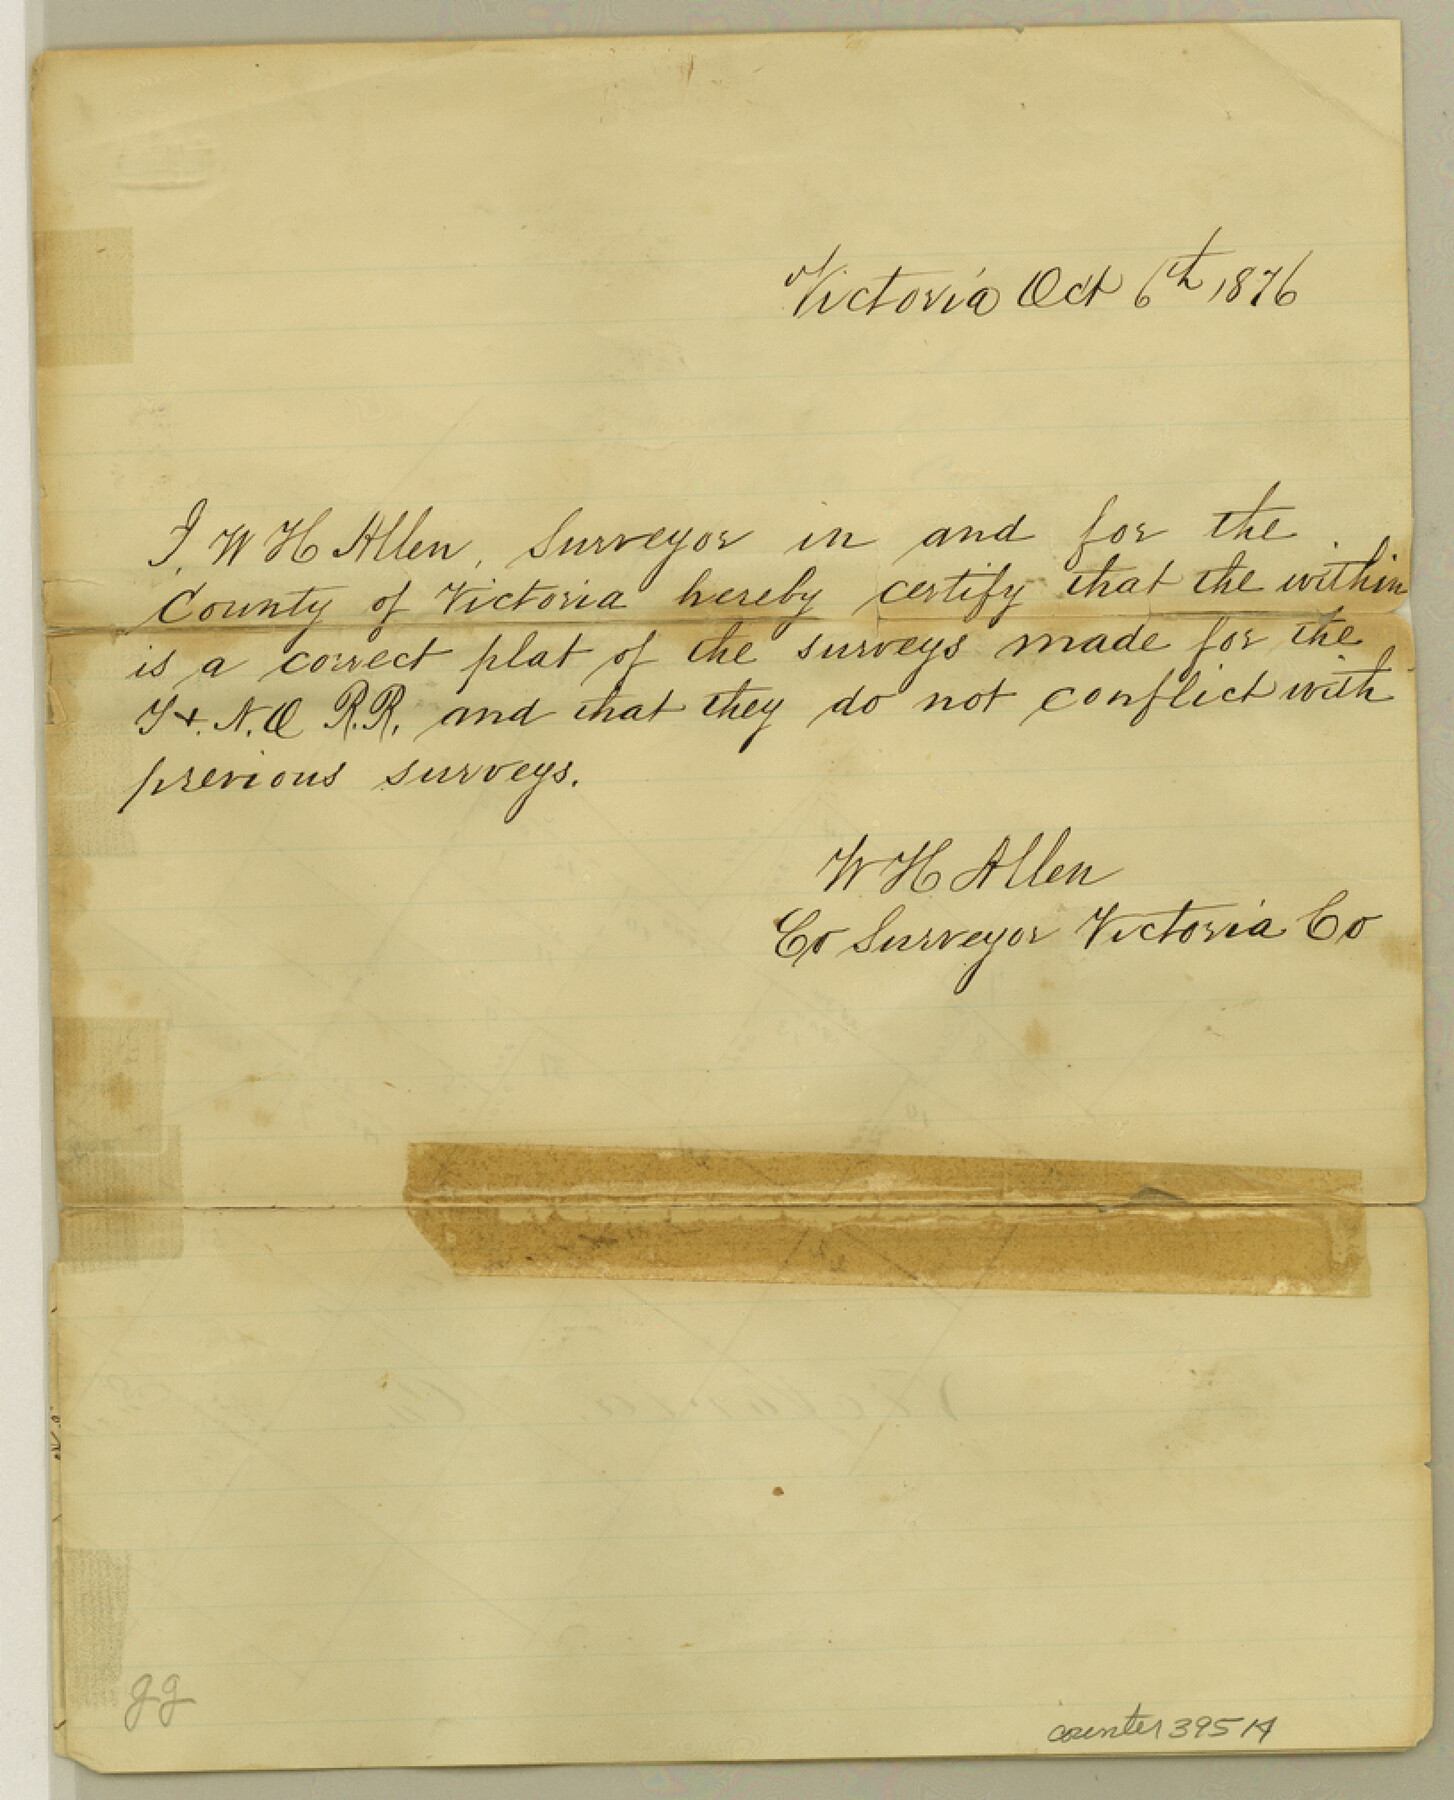 Victoria Oct 6th 1876
I, W H Allen, Surveyor in and for the
County of Victoria hereby certify that the within
is a correct plat of the surveys made for the
T & N.O R.R. and that they do not conflict with
previous surveys.
W H Allen
Co Surveyor Victoria Co
counter 39514